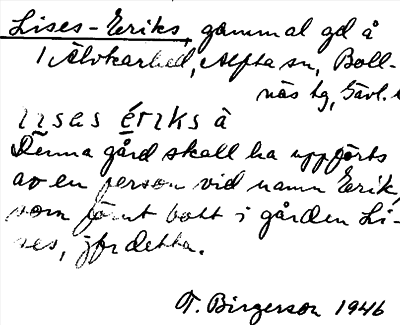 Lises-Eriks, gammal gd å
Älvkarhed, Alfta sn, Boll-
näs tg, Gävl.
lisas ériks à
Denna gård skall ha uppförts
av en person vid namn Erik,
som förut bott i gården Li-
ses, jfr detta.
T. Birgerson 1946